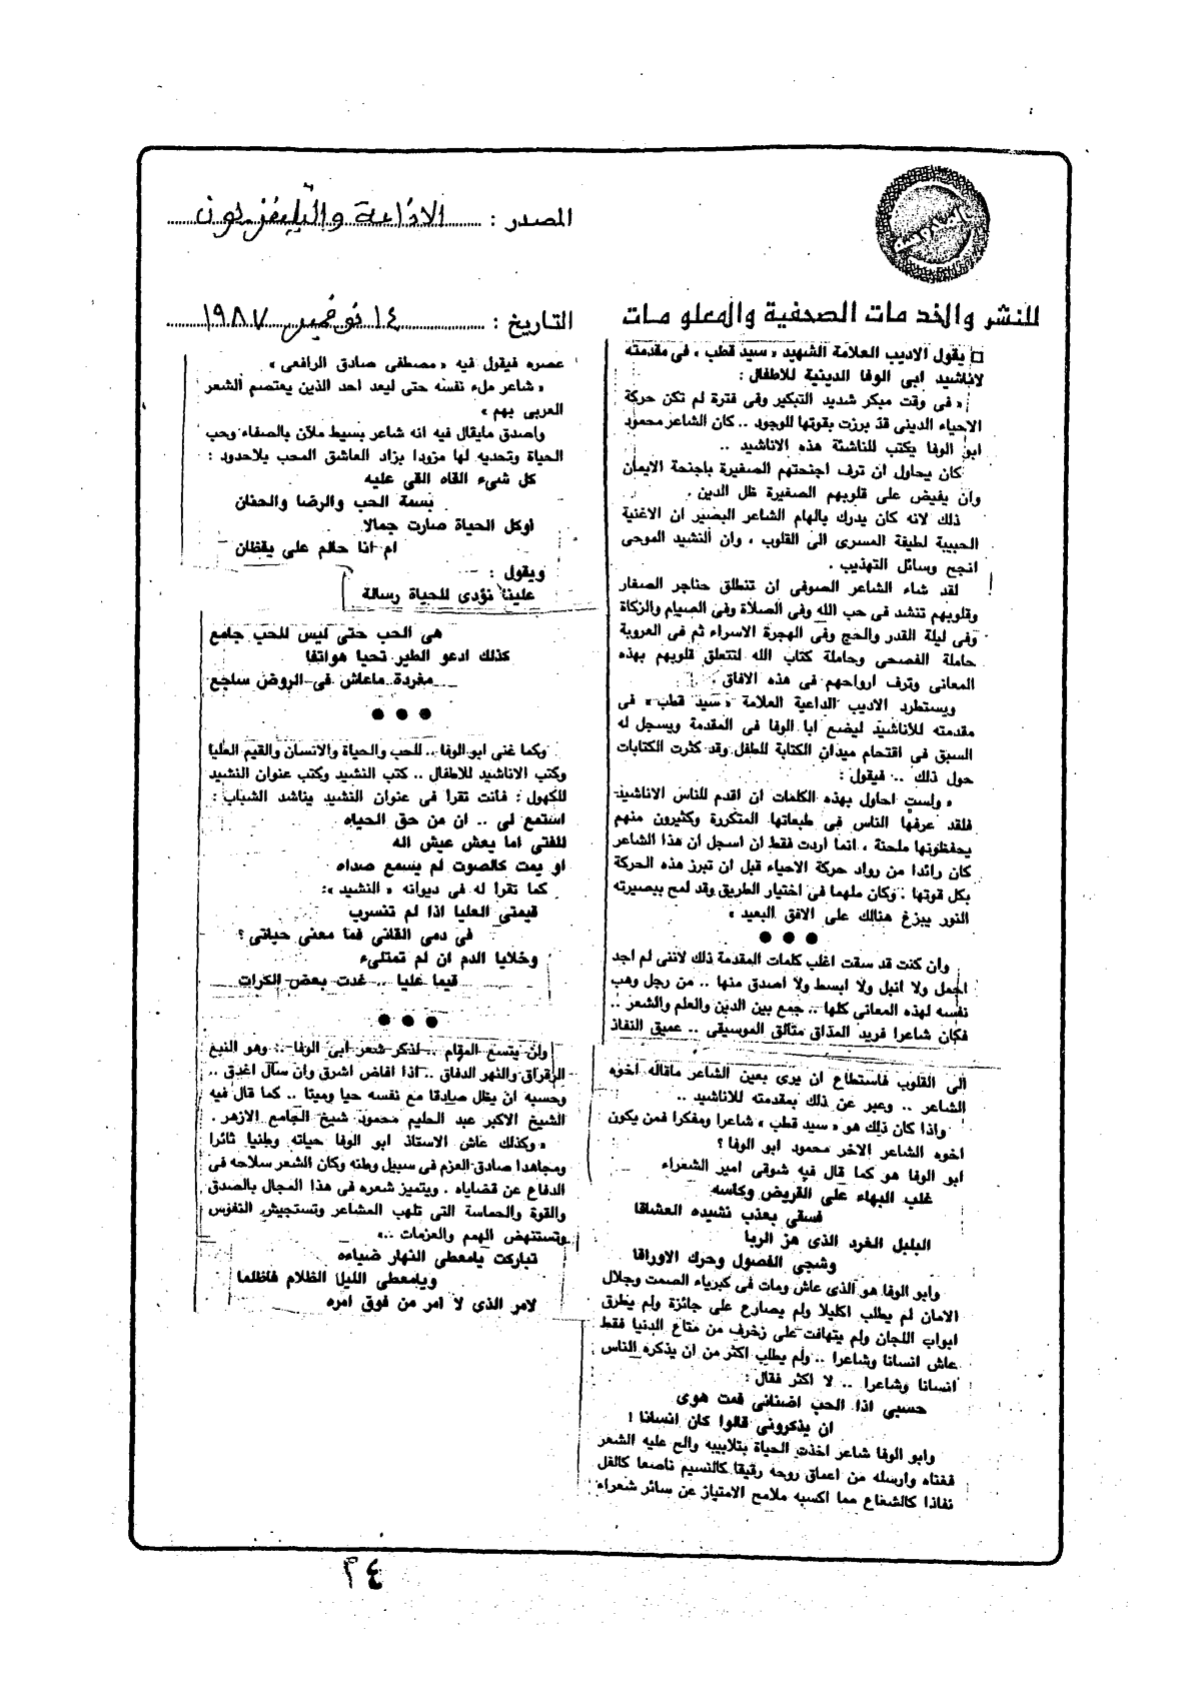 المصدر : الاذاعة والتليفزيون
للنشر والخدمات الصحفية والمعلومات
التاريخ : ١٤ نوفمبر ١٩٨٧
□ يقول الاديب العلامة الشهيد « سيد قطب » فى مقدمته
لاناشيد ابى الوفا الدينية للاطفال :
« فى وقت مبكر شديد التبكير وفى فترة لم تكن حركة
الاحياء الدينى قد برزت بقوتها للوجود .. كان الشاعر محمود
ابو الوفا يكتب للناشئة هذه الاناشيد ..
كان يحاول ان ترف اجنحتهم الصغيرة باجنحة الايمان
وان يفيض على قلوبهم الصغيرة ظل الدين .
ذلك لانه كان يدرك بالهام الشاعر البصير ان الاغنية
الحبيبة لطيفة المسرى الى القلوب ، وان النشيد الموحى
انجح وسائل التهذيب .
لقد شاء الشاعر الصوفى ان تنطلق حناجر الصغار
وقلوبهم تنشد فى حب الله وفى الصلاة وفى الصيام والزكاة
وفى ليلة القدر والحج وفى الهجرة الاسراء ثم فى العروبة
حاملة الفصحى وحاملة كتاب الله لتتعلق قلوبهم بهذه
المعانى وترف ارواحهم فى هذه الافاق .
ويستطرد الاديب الداعية العلامة « سيد قطب » فى
مقدمته للأناشيد ليضع ابا الوفا فى المقدمة ويسجل له
السبق فى اقتحام ميدان الكتابة للطفل وقد كثرت الكتابات
حول ذلك .. فيقول :
« ولست احاول بهذه الكلمات ان اقدم للناس الاناشيد
فلقد عرفها الناس فى طبعاتها المتكررة وكثيرون منهم
يحفظونها ملحنة ، انما اردت فقط ان اسجل ان هذا الشاعر
كان رائدا من رواد حركة الاحياء قبل ان تبرز هذه الحركة
بكل قوتها . وكان ملهما فى اختيار الطريق وقد لمح ببصيرته
النور يبزغ هنالك على الافق البعيد »
● ● ●
وان كنت قد سقت اغلب كلمات المقدمة ذلك لاننى لم اجد
اجمل ولا انبل ولا ابسط ولا اصدق منها .. من رجل وهب
نفسه لهذه المعانى كلها .. جمع بين الدين والعلم والشعر ..
فكان شاعرا فريد المذاق متألق الموسيقى .. عميق النفاذ
الى القلوب فاستطاع ان يرى بعين الشاعر ماقاله اخوه
الشاعر .. وعبر عن ذلك بمقدمته للاناشيد ..
واذا كان ذلك هو « سيد قطب » شاعرا ومفكرا فمن يكون
اخوه الشاعر الاخر محمود ابو الوفا ؟
ابو الوفا هو كما قال فيه شوقى امير الشعراء
غلب البهاء على القريض وكاسه
فسقى بعذب نشيده العشاقا
البلبل الغرد الذى هز الربا
وشجى الغصون وحرك الاوراقا
وابو الوفا هو الذى عاش ومات فى كبرياء الصمت وجلال
الامان لم يطلب اكليلا ولم يصارع على جائزة ولم يطرق
ابواب اللجان ولم يتهافت على زخرف من متاع الدنيا فقط
عاش انسانا وشاعرا .. ولم يطلب اكثر من ان يذكره الناس
انسانا وشاعرا .. لا اكثر فقال :
حسبى اذا الحب اضنانى فمت هوى
ان يذكرونى قالوا كان انسانا !
وابو الوفا شاعر اخذت الحياة بتلابيبه والح عليه الشعر
فغناه وارسله من اعماق روحه رقيقا كالنسيم ناصعا كالفل
نفاذا كالشعاع مما اكسبه ملامح الامتياز عن سائر شعراء
عصره فيقول فيه « مصطفى صادق الرافعى »
« شاعر ملء نفسه حتى ليعد احد الذين يعتصم الشعر
العربى بهم »
واصدق مايقال فيه انه شاعر بسيط ملآن بالصفاء وحب
الحياة وتحديه لها مزودا بزاد العاشق المحب بلاحدود :
كل شىء القاه القى عليه
بسمة الحب والرضا والحنان
اوكل الحياة صارت جمالا
ام انا حالم على يقظان
ويقول :
علينا نؤدى للحياة رسالة
هى الحب حتى ليس للحب جامع
كذلك ادعو الطير تحيا هواتفا
مغردة ماعاش فى الروض ساجع
● ● ●
وكما غنى ابو الوفا .. للحب والحياة والانسان والقيم العليا
وكتب الاناشيد للاطفال .. كتب النشيد وكتب عنوان النشيد
للكهول : فأنت تقرأ فى عنوان النشيد يناشد الشباب :
استمع لى .. ان من حق الحياه
للفتى اما يعش عيش اله
او يمت كالصوت لم يسمع صداه
كما تقرا له فى ديوانه « النشيد »:
قيمتى العليا اذا لم تنسرب
فى دمى القانى فما معنى حياتى ؟
وخلايا الدم ان لم تمتلىء
قيما عليا .. غدت بعض الكرات
● ● ●
ولن يتسع المقام .. لذكر شعر ابى الوفا .. وهو النبع
الرقراق والنهر الدفاق .. اذا افاض اشرق وان سأل اغدق ..
وحسبه ان يظل صادقا مع نفسه حيا وميتا .. كما قال فيه
الشيخ الاكبر عبد الحليم محمود شيخ الجامع الازهر .
« وكذلك عاش الاستاذ ابو الوفا حياته وطنيا ثائرا
ومجاهدا صادق العزم فى سبيل وطنه وكان الشعر سلاحه فى
الدفاع عن قضاياه . ويتميز شعره فى هذا المجال بالصدق
والقوة والحماسة التى تلهب المشاعر وتستجيش النفوس
وتستنهض الهمم والعزمات ..»
تباركت يامعطى النهار ضياءه
ويامعطى الليل الظلام فاظلما
لامر الذى لا امر من فوق امره
٣٤